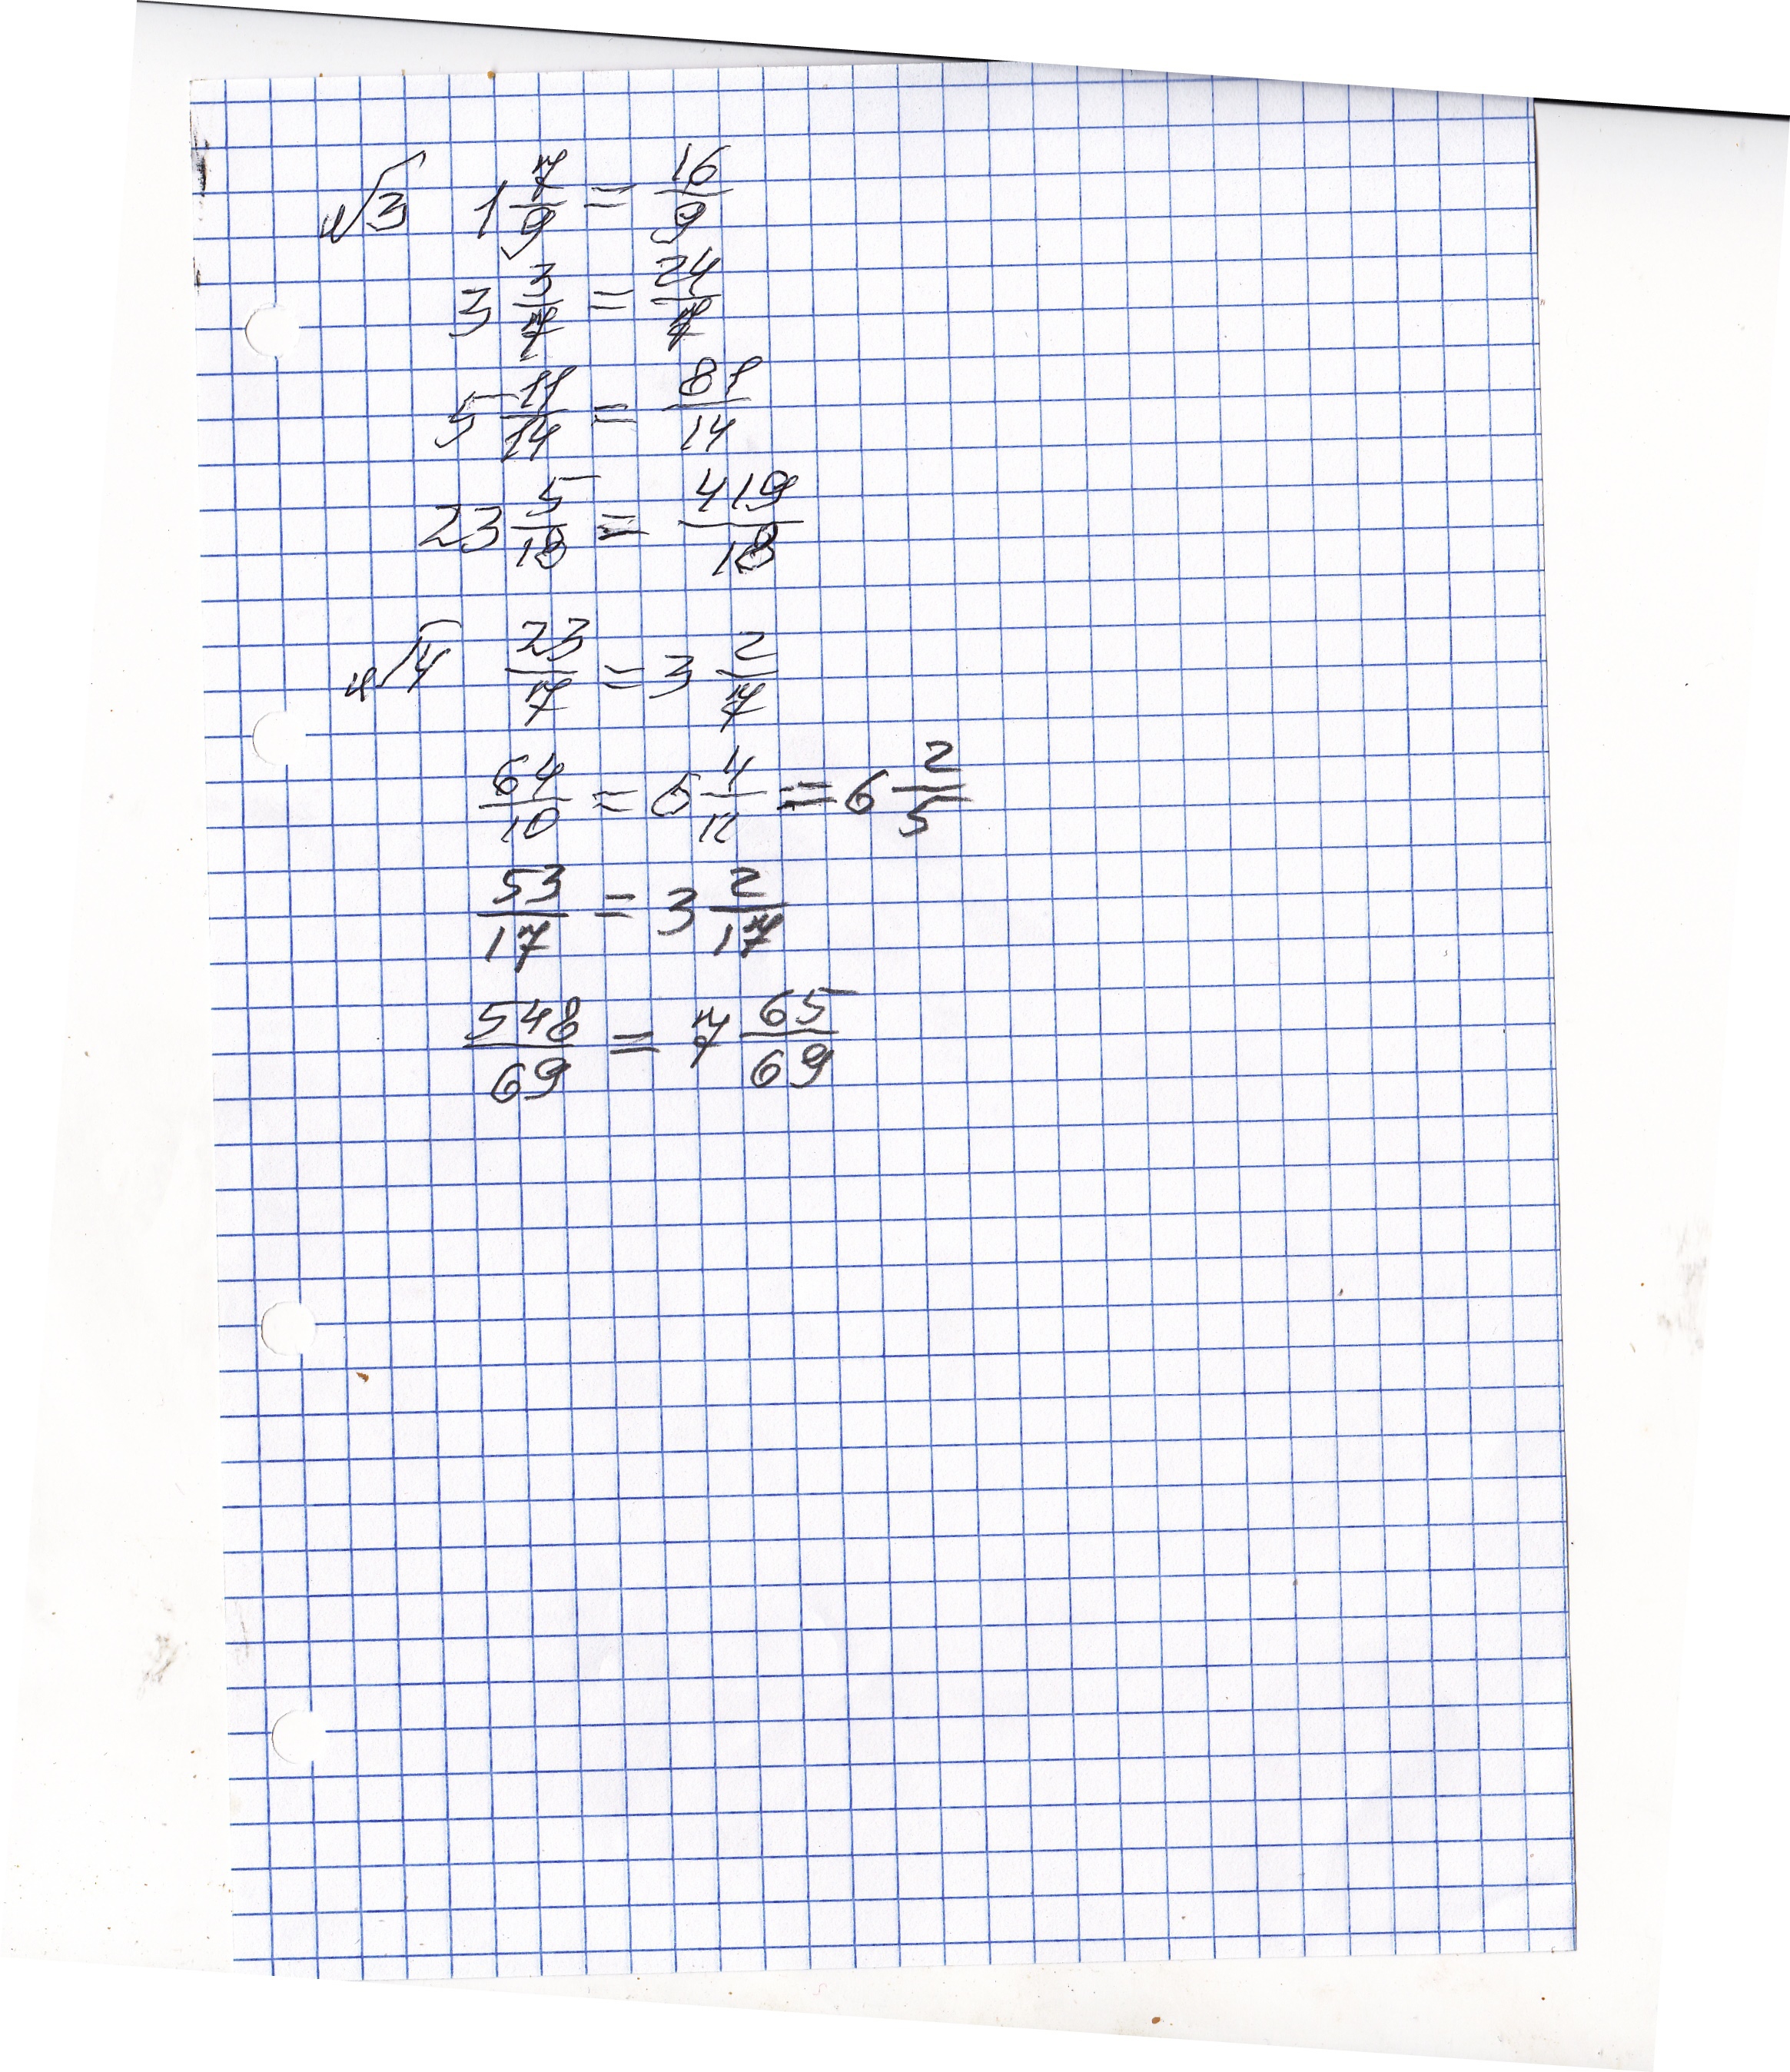 √3 1 7/9 = 16/9
3 3/7 = 24/7
5 11/14 = 81/14
23 5/18 = 419/18
√4 23/7 = 3 2/7
64/10 = 6 4/11 = 6 2/5
53/17 = 3 2/17
548/69 = 7 65/69